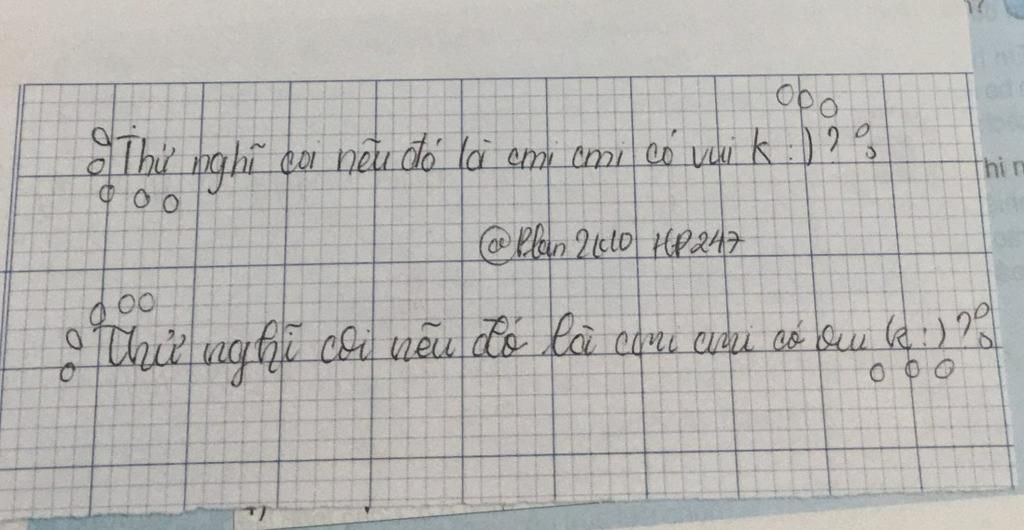 Thử nghĩ coi nếu đó là cmi cmi có vui k :)?
@Plan 2k10 HP247
Thử nghĩ coi nếu đó là cmi cmi có vui k :)?